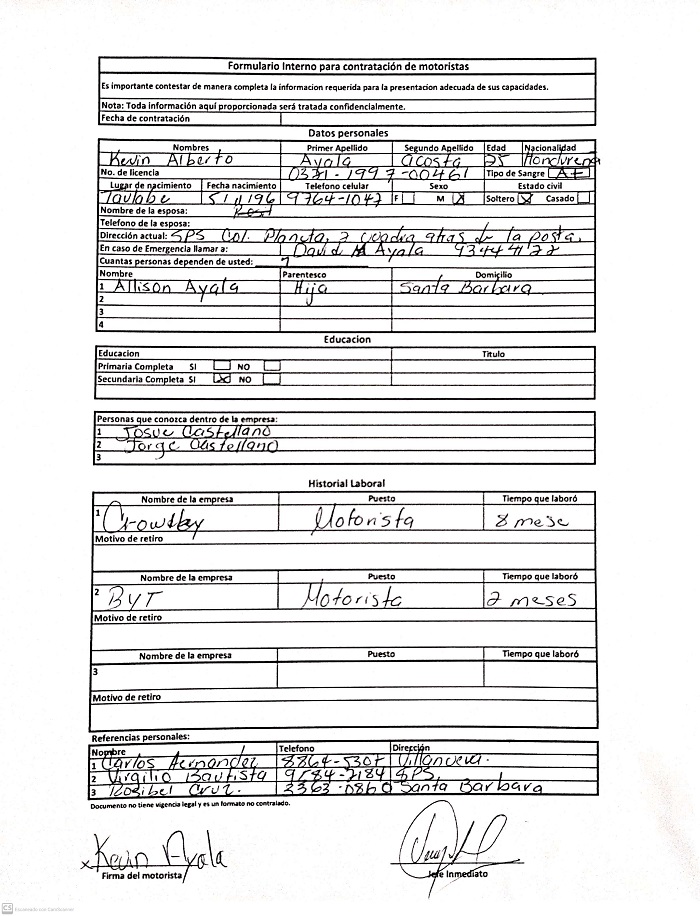 Formulario Interno para contratación de motoristas
Es importante contestar de manera completa la informacion requerida para la presentacion adecuada de sus capacidades.
Nota: Toda información aquí proporcionada será tratada confidencialmente.
Fecha de contratación
Datos personales
Nombres Primer Apellido Segundo Apellido Edad Nacionalidad
Kevin Alberto Ayala acosta 25 Hondurena
No. de licencia 0321-1997-00461 Tipo de Sangre A+
Lugar de nacimiento Fecha nacimiento Telefono celular Sexo Estado civil
Taulabe 9764-1047 F M X Soltero X Casado
Nombre de la esposa:
Telefono de la esposa:
Dirección actual: SPS Col. Planeta, 2 cuadra atras de la posta.
En caso de Emergencia llamar a: David Ayala
Cuantas personas dependen de usted:
Nombre Parentesco Domicilio
1 Allison Ayala Hija Santa Barbara
2
3
4
Educacion
Educacion Titulo
Primaria Completa SI NO
Secundaria Completa SI X NO
Personas que conozca dentro de la empresa:
1 Josue Castellano
2 Jorge Castellano
3
Historial Laboral
Nombre de la empresa Puesto Tiempo que laboró
1 Motorista 8 mese
Motivo de retiro
Nombre de la empresa Puesto Tiempo que laboró
2 BYT Motorista 2 meses
Motivo de retiro
Nombre de la empresa Puesto Tiempo que laboró
3
Motivo de retiro
Referencias personales:
Nombre Telefono Dirección
1 Carlos Hernandez 8864-5307 Villanueva.
2 Virgilio Bautista 9584-2184 SPS
3 Rosibel Cruz. 3363-0860 Santa Barbara
Documento no tiene vigencia legal y es un formato no contralado.
x Kevin Ayala
Firma del motorista Jefe Inmediato
CS Escaneado con CamScanner